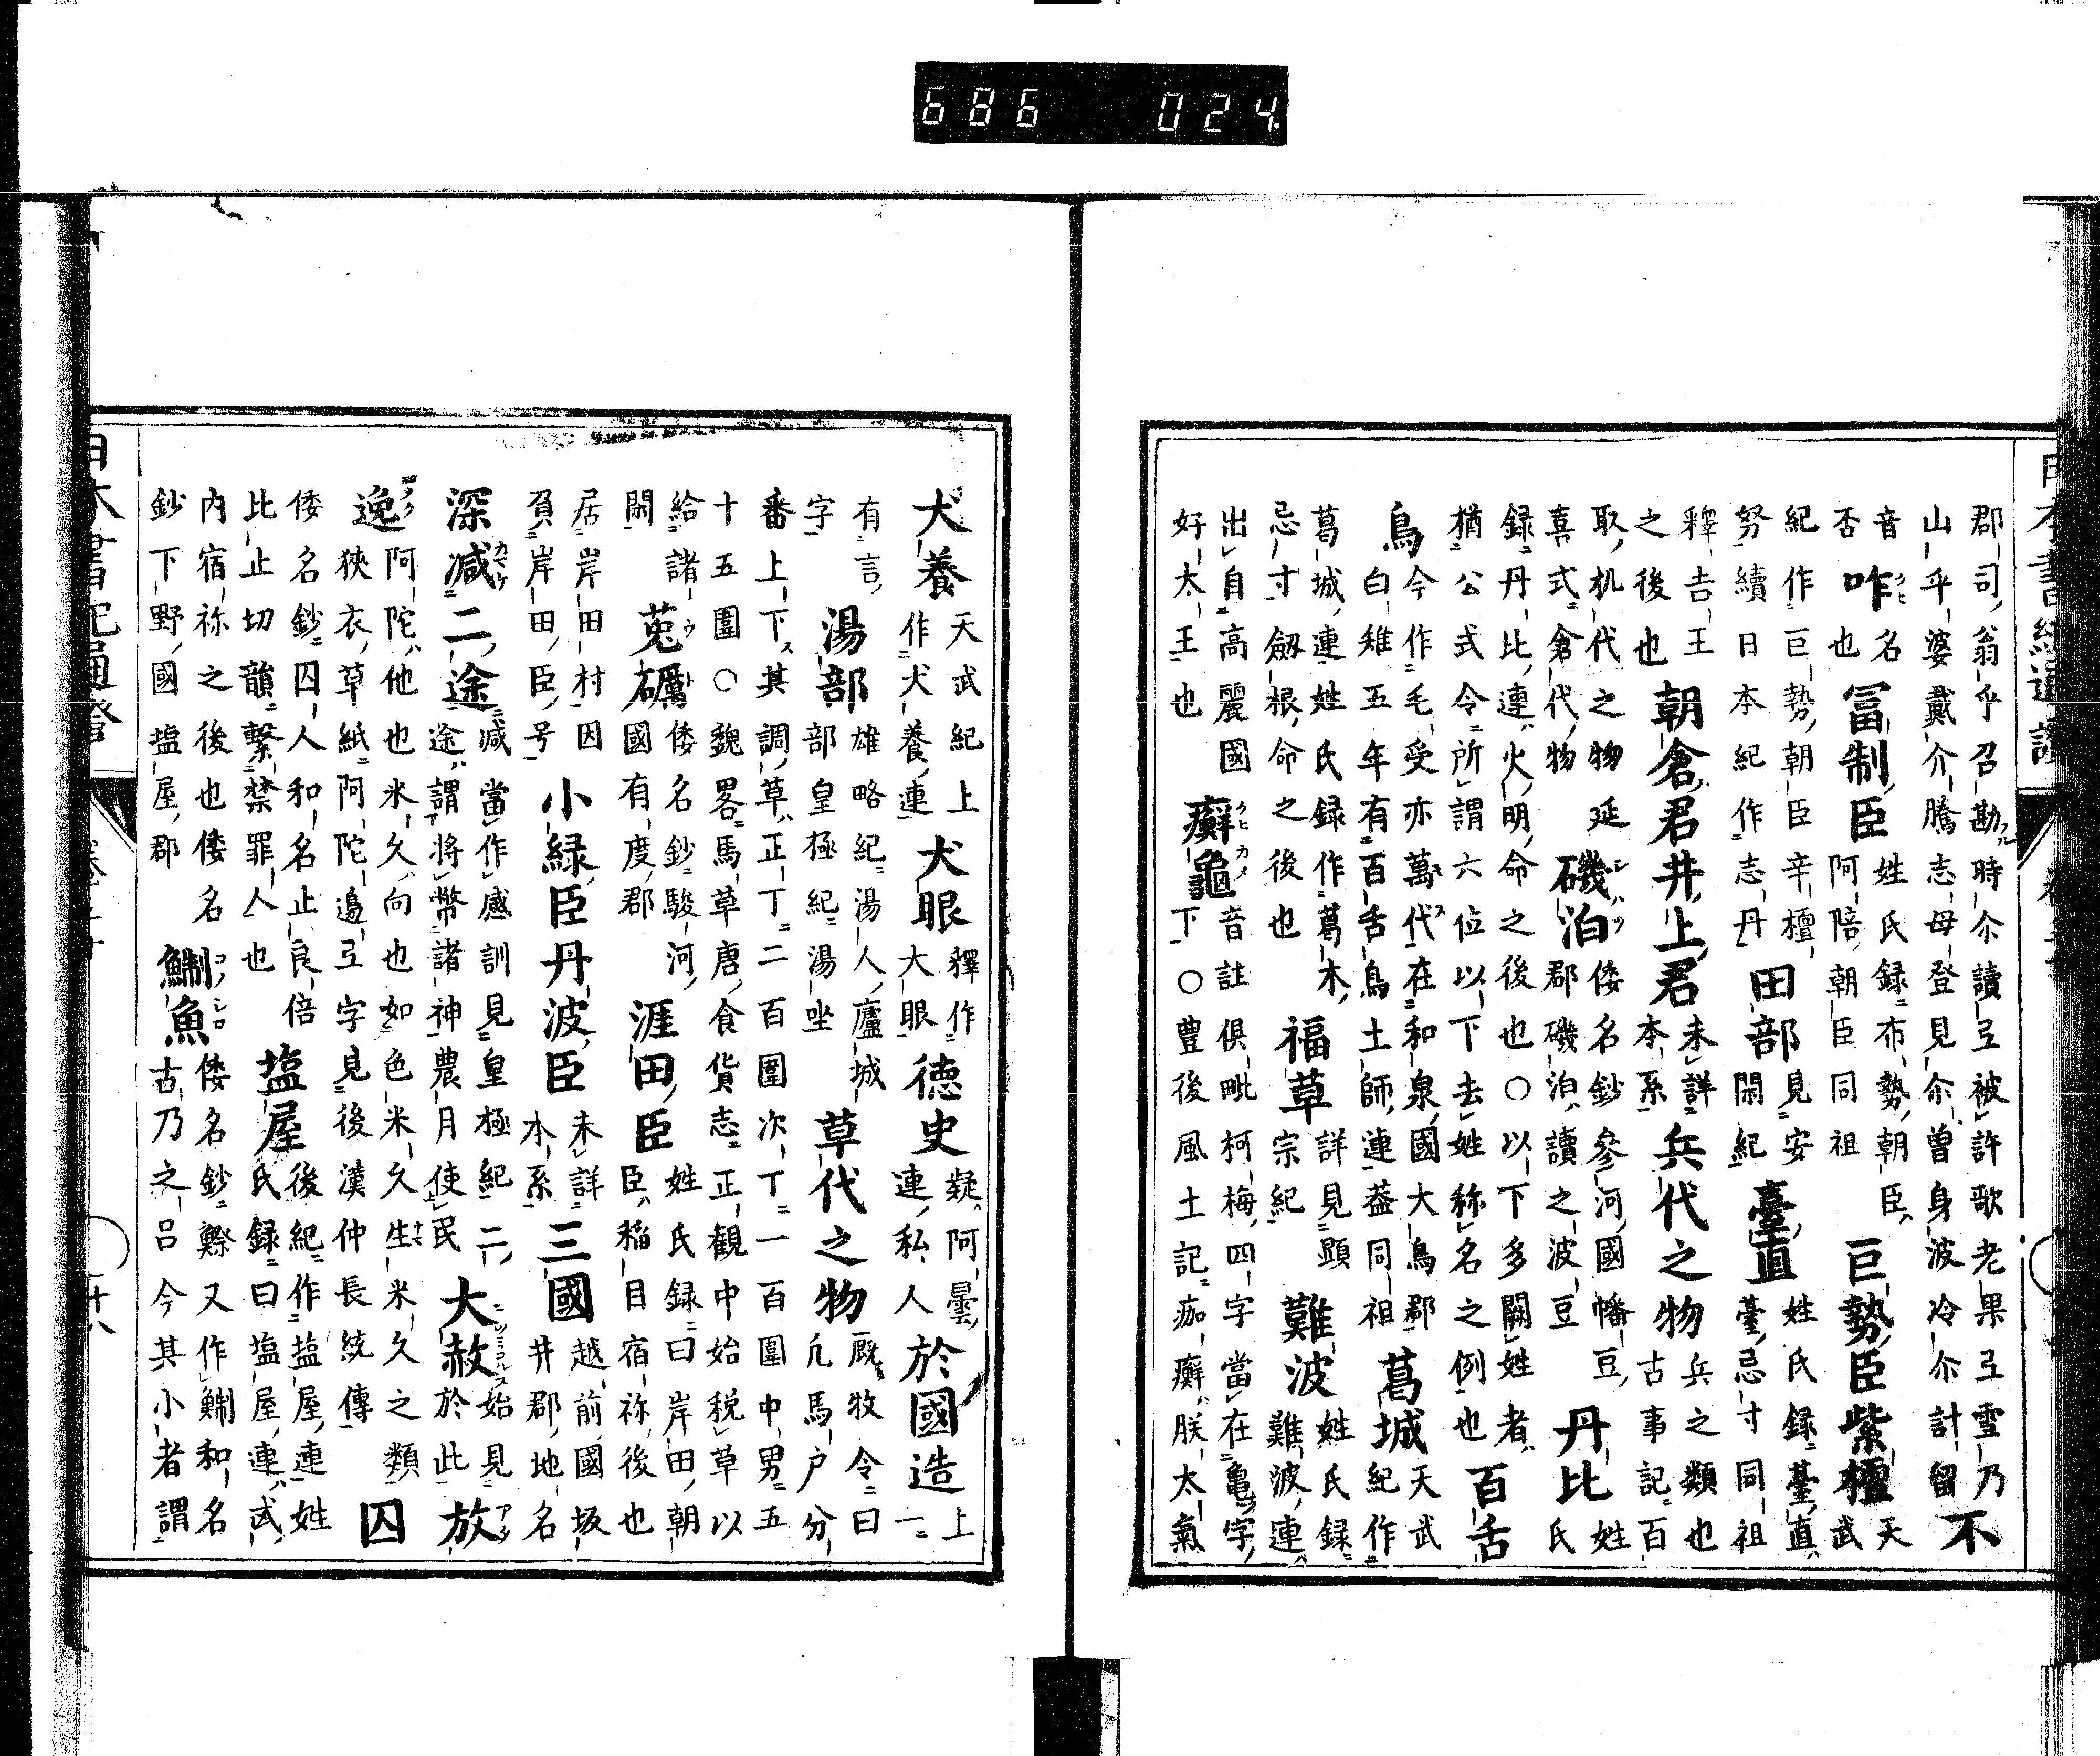 686 024
郡司翁乎召勘時尒讀弖被許歌老果弖雪乃山乎婆戴介騰志母登見尒曽身波冷尒計留不
音否咋名也冨制臣姓氏録布勢朝臣阿陪朝臣同祖巨勢臣紫檀天武
紀作巨勢朝臣辛檀努續日本紀作志丹田部見安閑紀臺直姓氏録臺直臺忌寸同祖
釋吉王之後也朝倉君井上君未詳本系兵代之物兵之類也古事記百
取机代之物延喜式倉代物磯泊倭名鈔參河國幡豆郡磯泊讀之波豆丹比姓氏
録丹比連火明命之後也○以下多闕姓者猶公式令所謂六位以下去姓称名之例也百舌
鳥今作毛受亦萬代在和泉國大鳥郡白雉五年有百舌鳥土師連蓋同祖葛城天武紀作
葛城連姓氏録作葛木忌寸劔根命之後也福草詳見顕宗紀難波姓氏録難波連
出自高麗國好太王也癬龜音註倶毗柯梅四字當在亀字下○豊後風土記痂癬朕太氣
犬養天武紀上作犬養連犬眼釋作大眼徳史疑阿曇連私人於國造上一
有言字湯部雄略紀湯人廬城部皇極紀湯坐草代之物厩牧令曰凢馬户分
番上下其調草正丁二百圍次丁一百圍中男五十五圍○魏畧馬草唐食貨志正觀中始税草以
給諸閑莵礪倭名鈔駿河國有度郡涯田臣姓氏録曰岸田朝臣稲目宿祢後也
居岸田村因負岸田臣号小緑臣丹波臣未詳本系三國越前國坂井郡地名
深减二途减當作感訓見皇極紀二途謂将幣諸神農月使民大赦始見於此放
逸阿陀他也米久向也如色米久生米久之類狹衣草紙阿陀邉弖字見後漢仲長統傳囚
倭名鈔囚人和名止良倍比止切韻繋禁罪人也塩屋後紀作塩屋連姓氏録曰塩屋連武
内宿祢之後也倭名鈔下野國塩屋郡鯯魚倭名鈔鰶又作鯯和名古乃之呂今其小者謂
日本書紀通證 十八